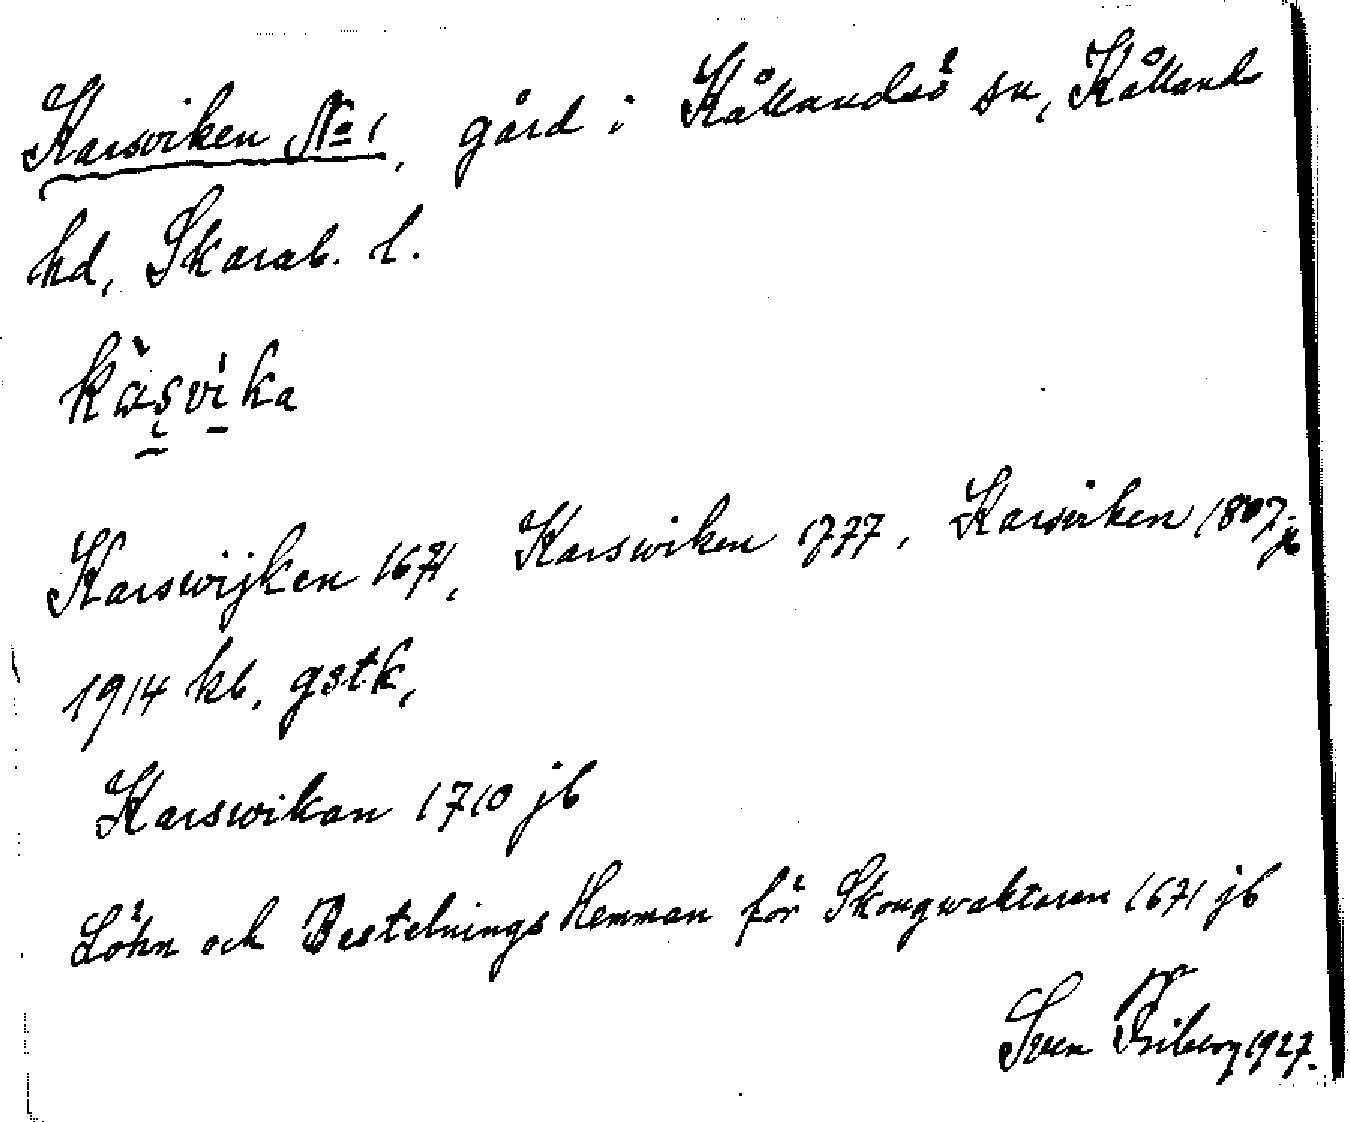 Karsviken No 1, gård i Kållandsö sn, Kållands
hd, Skarab. l.
kàsvika
Karswijken 1671, Karswiken 1777, Karsviken 1807 jb
1914 kb, gstk,
Karswikan 1710 jb
Löhn och Bestelnings Hemman för Skougwaktaren 1671 jb
Sven Friberg 1927.